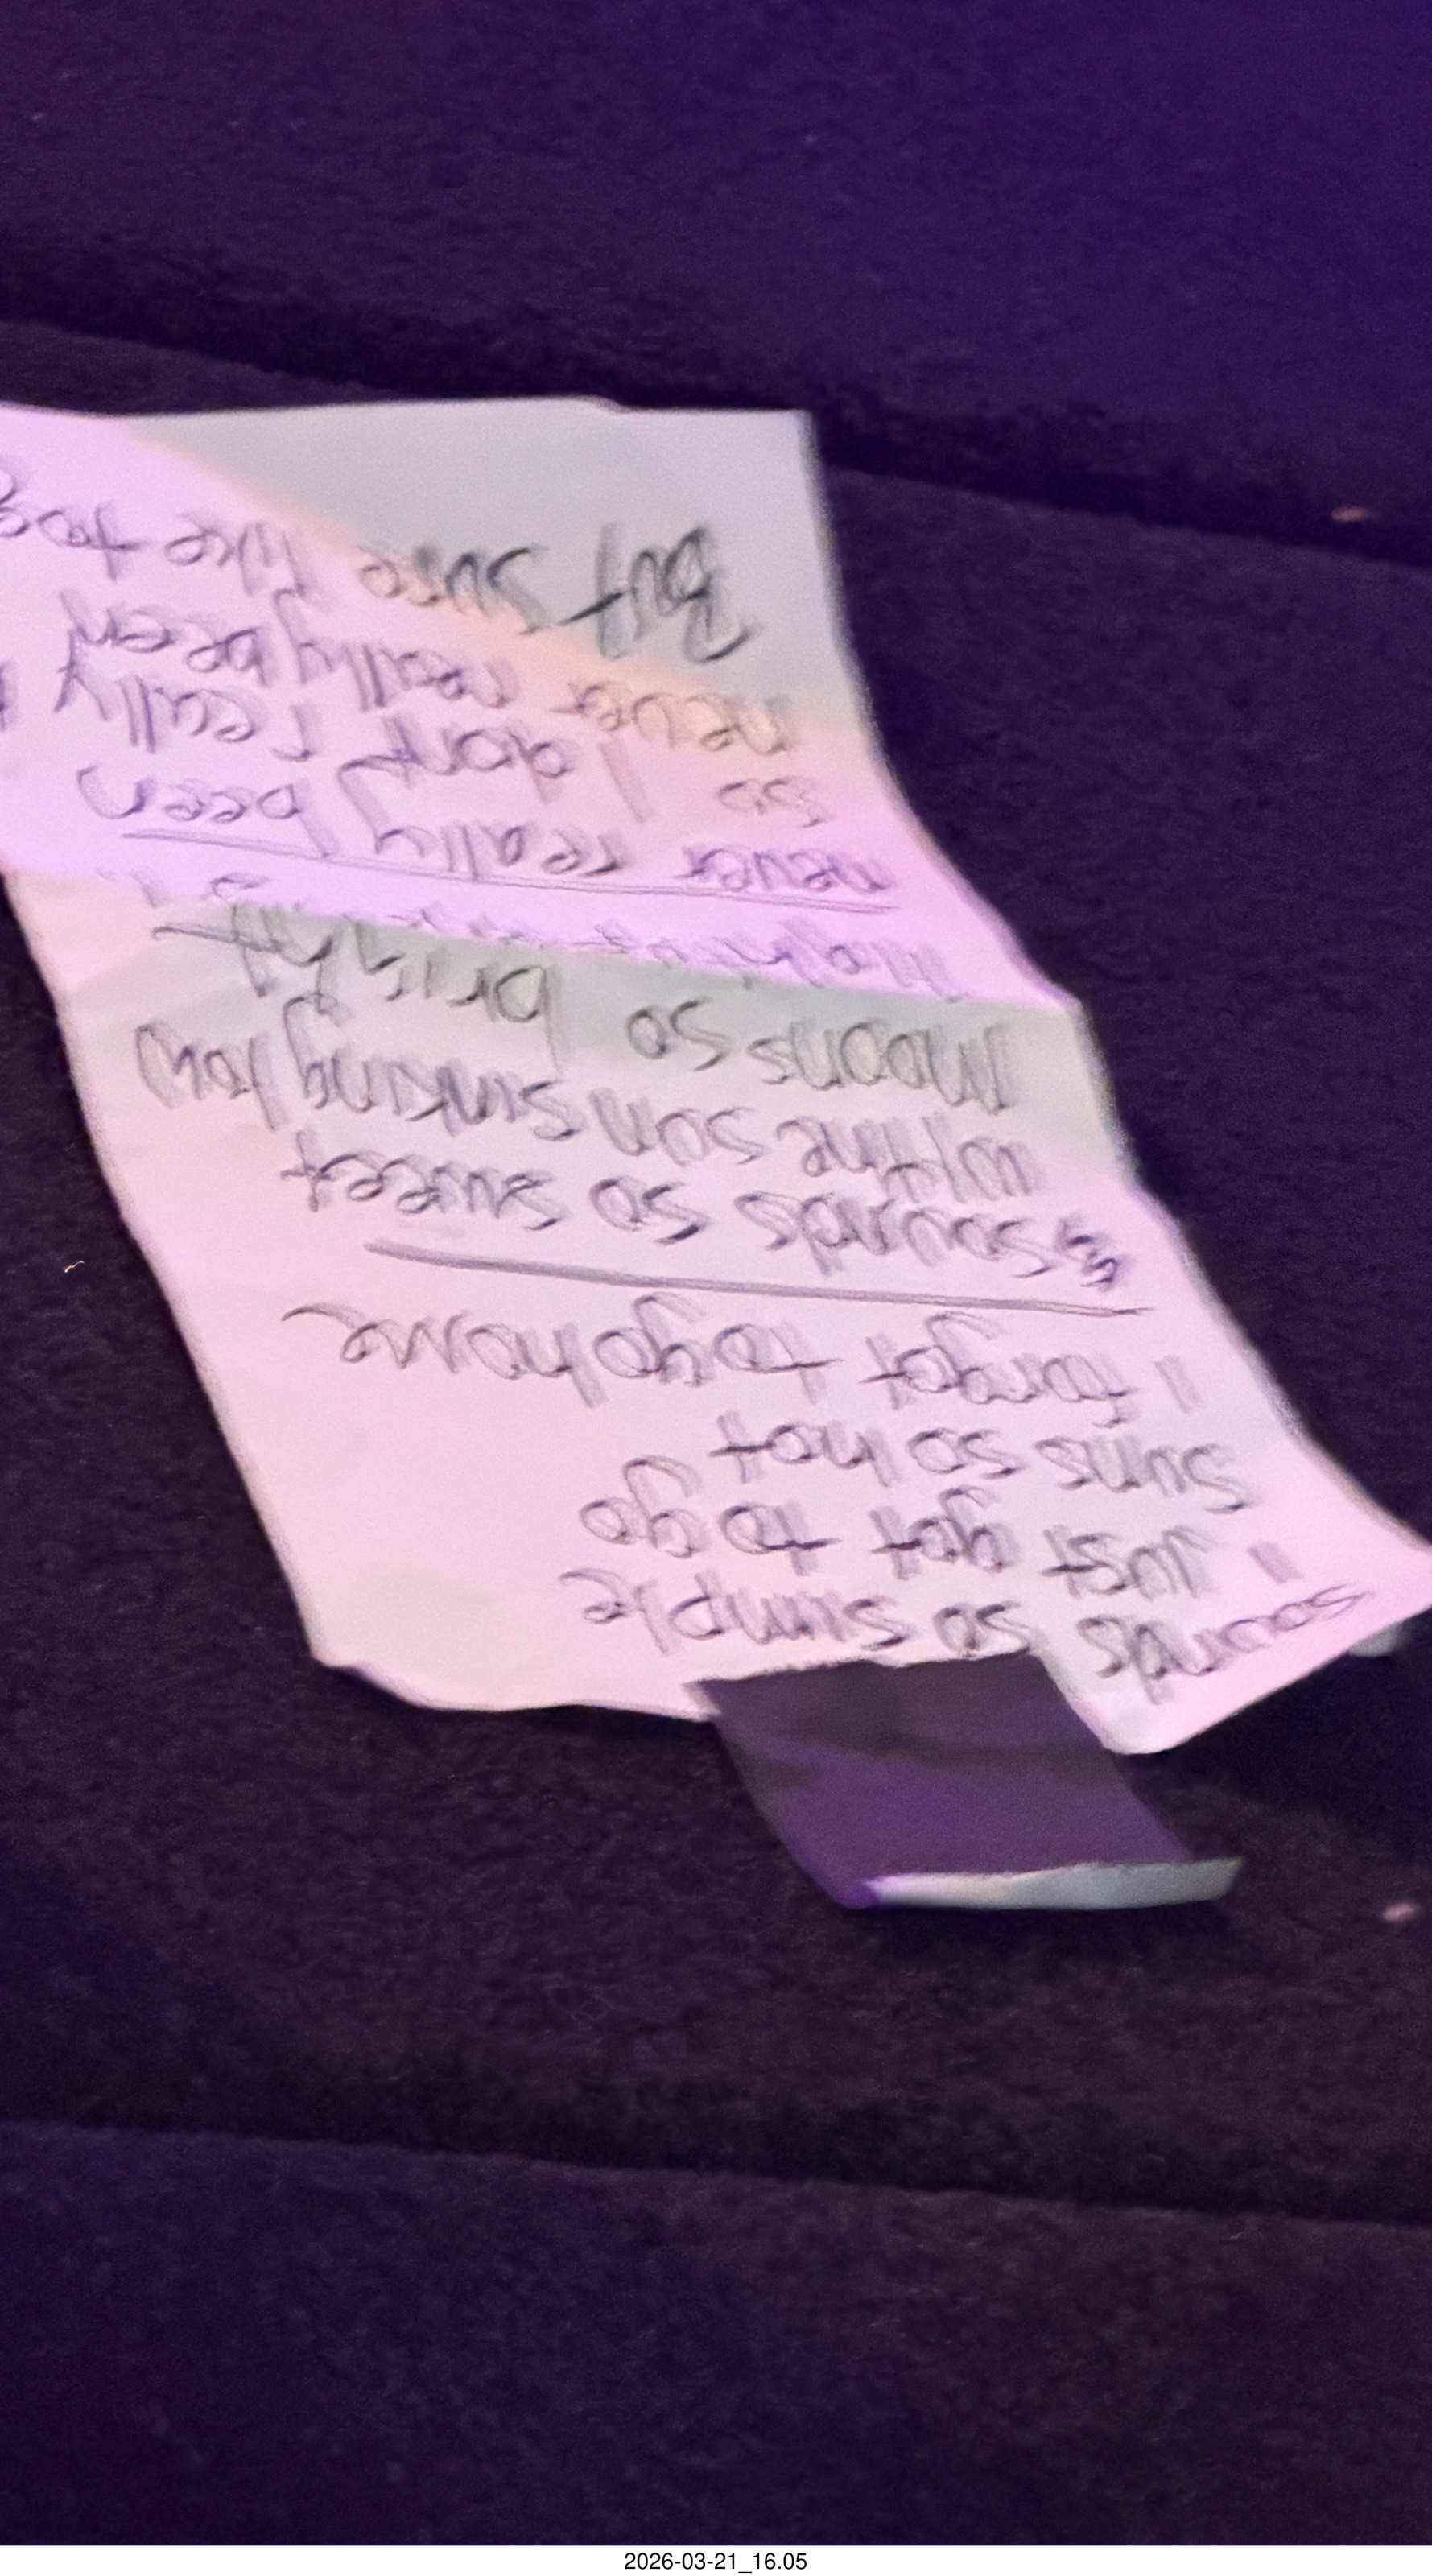 sounds so simple
I Just got to go
suns so hot
I forgot to go home
sounds so sweet
w/ the sun sinking low
Moons so bright
never really been
so I dont really
never really been
But sure like to
2026-03-21_16.05